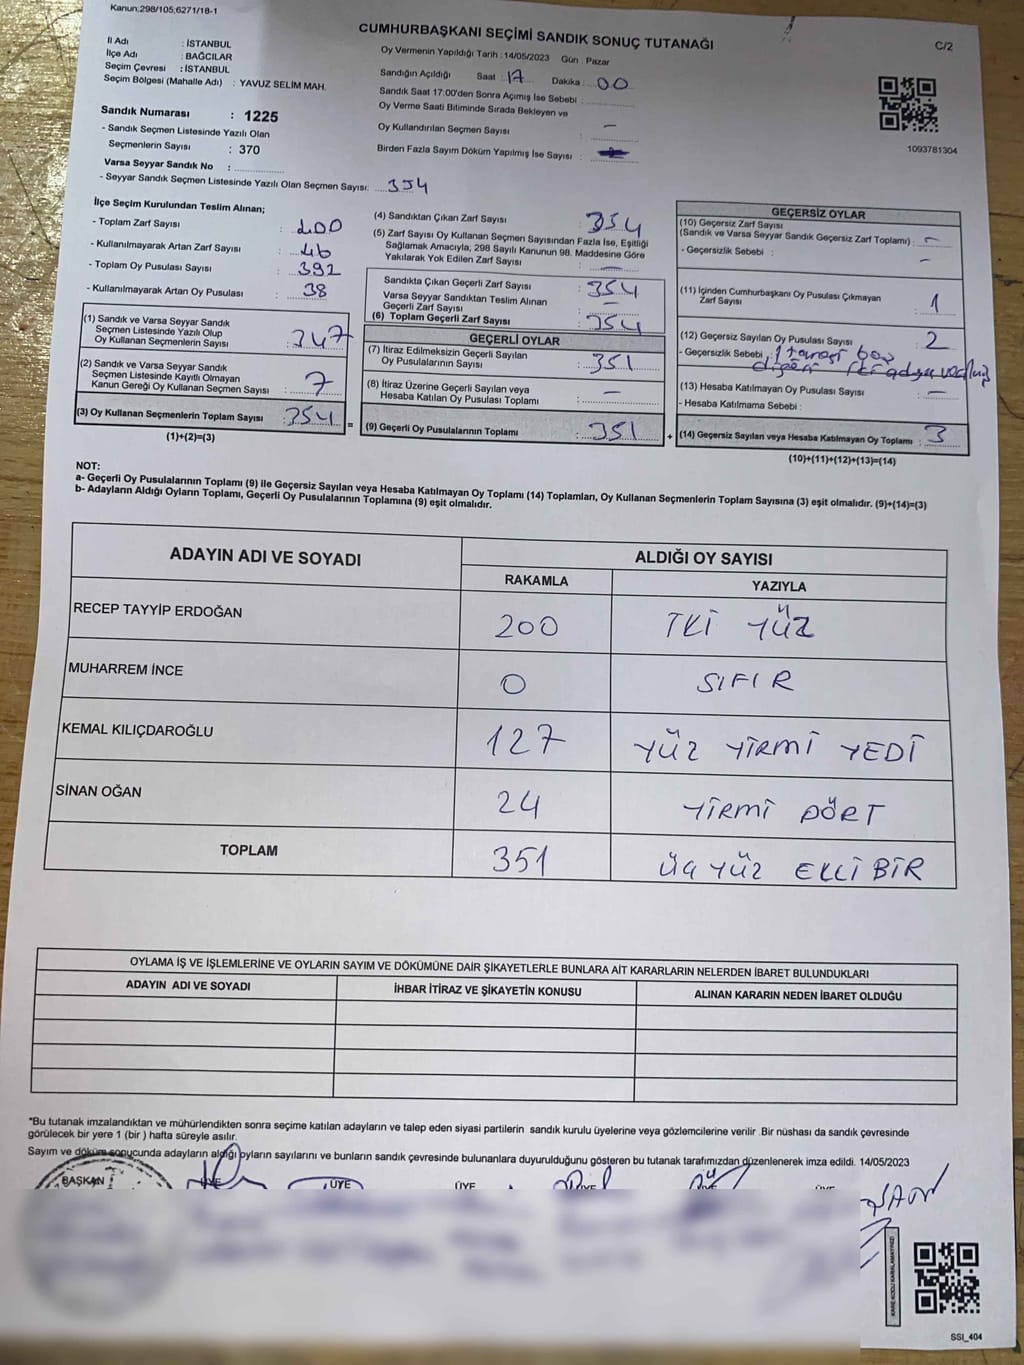 Kanun:298/105,6271/18-1
CUMHURBAŞKANI SEÇİMİ SANDIK SONUÇ TUTANAĞI
C/2
İl Adı : İSTANBUL
İlçe Adı : BAĞCILAR
Seçim Çevresi : İSTANBUL
Seçim Bölgesi (Mahalle Adı) : YAVUZ SELİM MAH.
Oy Vermenin Yapıldığı Tarih : 14/05/2023 Gün : Pazar
Sandığın Açıldığı Saat : 17 Dakika : 00
Sandık Saat 17:00'den Sonra Açımış İse Sebebi :
Oy Verme Saati Bitiminde Sırada Bekleyen ve
Oy Kullandırılan Seçmen Sayısı : —
Birden Fazla Sayım Döküm Yapılmış İse Sayısı :
1093781304
Sandık Numarası : 1225
- Sandık Seçmen Listesinde Yazılı Olan
Seçmenlerin Sayısı : 370
Varsa Seyyar Sandık No :
- Seyyar Sandık Seçmen Listesinde Yazılı Olan Seçmen Sayısı: 354
İlçe Seçim Kurulundan Teslim Alınan;
- Toplam Zarf Sayısı : 400
- Kullanılmayarak Artan Zarf Sayısı : 46
- Toplam Oy Pusulası Sayısı : 392
- Kullanılmayarak Artan Oy Pusulası : 38
(1) Sandık ve Varsa Seyyar Sandık
Seçmen Listesinde Yazılı Olup
Oy Kullanan Seçmenlerin Sayısı : 347
(2) Sandık ve Varsa Seyyar Sandık
Seçmen Listesinde Kayıtlı Olmayan
Kanun Gereği Oy Kullanan Seçmen Sayısı : 7
(3) Oy Kullanan Seçmenlerin Toplam Sayısı : 354 =
(1)+(2)=(3)
(4) Sandıktan Çıkan Zarf Sayısı : 354
(5) Zarf Sayısı Oy Kullanan Seçmen Sayısından Fazla İse, Eşitliği
Sağlamak Amacıyla; 298 Sayılı Kanunun 98. Maddesine Göre
Yakılarak Yok Edilen Zarf Sayısı : —
Sandıkta Çıkan Geçerli Zarf Sayısı : 354
Varsa Seyyar Sandıktan Teslim Alınan
Geçerli Zarf Sayısı : —
(6) Toplam Geçerli Zarf Sayısı : 354
GEÇERLİ OYLAR
(7) İtiraz Edilmeksizin Geçerli Sayılan
Oy Pusulalarının Sayısı : 351
(8) İtiraz Üzerine Geçerli Sayılan veya
Hesaba Katılan Oy Pusulası Toplamı : —
(9) Geçerli Oy Pusulalarının Toplamı : 351 +
GEÇERSİZ OYLAR
(10) Geçersiz Zarf Sayısı
(Sandık ve Varsa Seyyar Sandık Geçersiz Zarf Toplamı) : —
- Geçersizlik Sebebi : —
(11) İçinden Cumhurbaşkanı Oy Pusulası Çıkmayan
Zarf Sayısı : 1
(12) Geçersiz Sayılan Oy Pusulası Sayısı : 2
- Geçersizlik Sebebi : 1 tanesi boş
diğeri
(13) Hesaba Katılmayan Oy Pusulası Sayısı : —
- Hesaba Katılmama Sebebi :
(14) Geçersiz Sayılan veya Hesaba Katılmayan Oy Toplamı : 3
(10)+(11)+(12)+(13)=(14)
NOT:
a- Geçerli Oy Pusulalarının Toplamı (9) ile Geçersiz Sayılan veya Hesaba Katılmayan Oy Toplamı (14) Toplamları, Oy Kullanan Seçmenlerin Toplam Sayısına (3) eşit olmalıdır. (9)+(14)=(3)
b- Adayların Aldığı Oyların Toplamı, Geçerli Oy Pusulalarının Toplamına (9) eşit olmalıdır.
ADAYIN ADI VE SOYADI
ALDIĞI OY SAYISI
RAKAMLA YAZIYLA
RECEP TAYYİP ERDOĞAN 200 İKİ YÜZ
MUHARREM İNCE 0 SIFIR
KEMAL KILIÇDAROĞLU 127 YÜZ YİRMİ YEDİ
SİNAN OĞAN 24 YİRMİ DÖRT
TOPLAM 351 ÜÇ YÜZ ELLİ BİR
OYLAMA İŞ VE İŞLEMLERİNE VE OYLARIN SAYIM VE DÖKÜMÜNE DAİR ŞİKAYETLERLE BUNLARA AİT KARARLARIN NELERDEN İBARET BULUNDUKLARI
ADAYIN ADI VE SOYADI İHBAR İTİRAZ VE ŞİKAYETİN KONUSU ALINAN KARARIN NEDEN İBARET OLDUĞU
*Bu tutanak imzalandıktan ve mühürlendikten sonra seçime katılan adayların ve talep eden siyasi partilerin sandık kurulu üyelerine veya gözlemcilerine verilir .Bir nüshası da sandık çevresinde
görülecek bir yere 1 (bir ) hafta süreyle asılır.
Sayım ve döküm sonucunda adayların aldığı oyların sayılarını ve bunların sandık çevresinde bulunanlara duyurulduğunu gösteren bu tutanak tarafımızdan düzenlenerek imza edildi. 14/05/2023
BAŞKAN ÜYE ÜYE ÜYE
KARE KODU KARALAMAYINIZ!
SSI_404